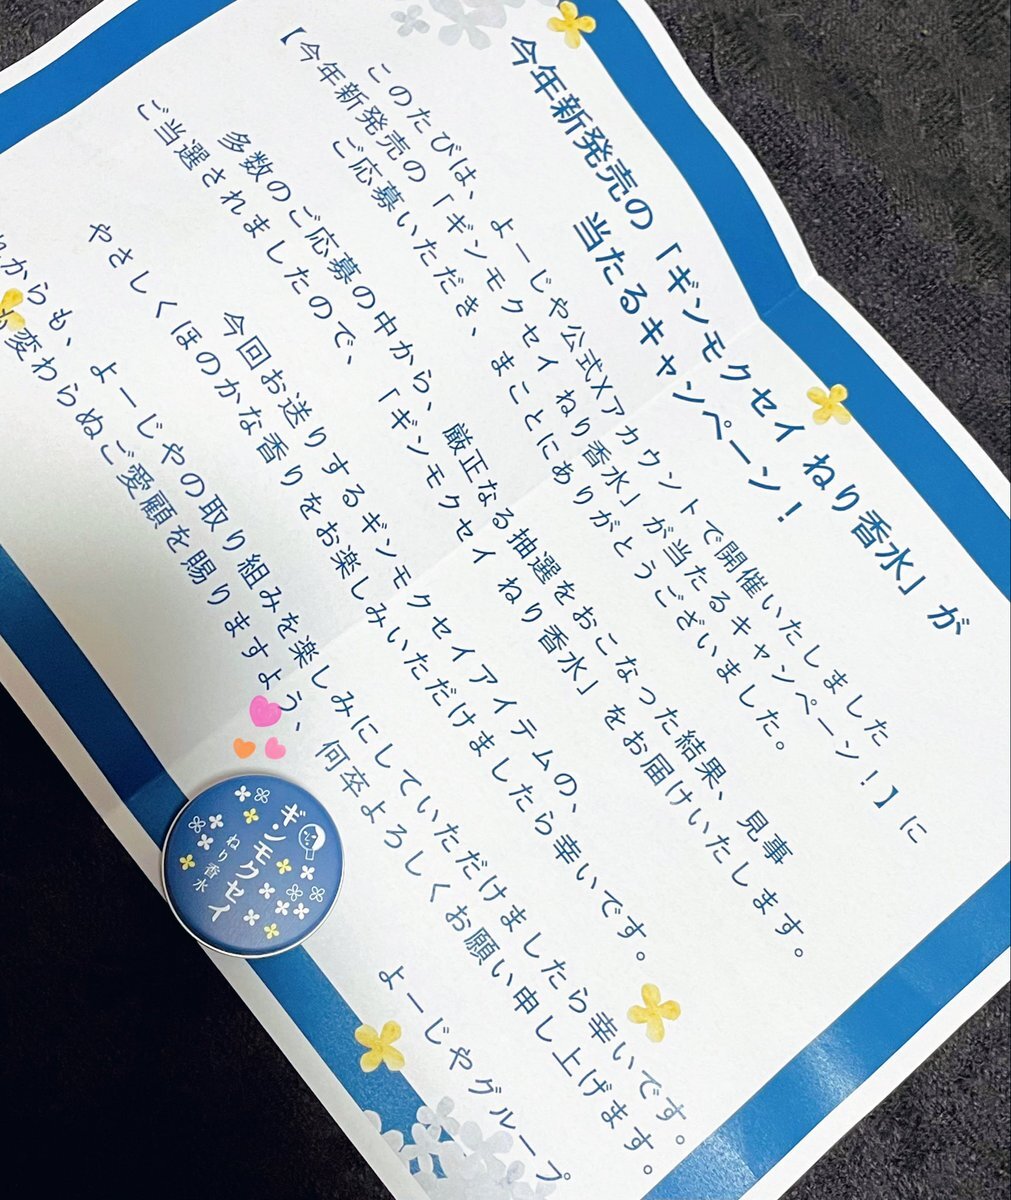 今年新発売の「ギンモクセイ ねり香水」が
当たるキャンペーン！
このたびは、よーじや公式Xアカウントで開催いたしました
【今年新発売の「ギンモクセイ ねり香水」が当たるキャンペーン！】に
ご応募いただき、まことにありがとうございました。
多数のご応募の中から、厳正なる抽選をおこなった結果、見事
ご当選されましたので、「ギンモクセイ ねり香水」をお届けいたします。
今回お送りするギンモクセイアイテムの、
やさしくほのかな香りをお楽しみいただけましたら幸いです。
れからも、よーじやの取り組みを楽しみにしていただけましたら幸いです。
も変わらぬご愛顧を賜りますよう、何卒よろしくお願い申し上げます。
よーじやグループ
ギンモクセイ
ねり香水